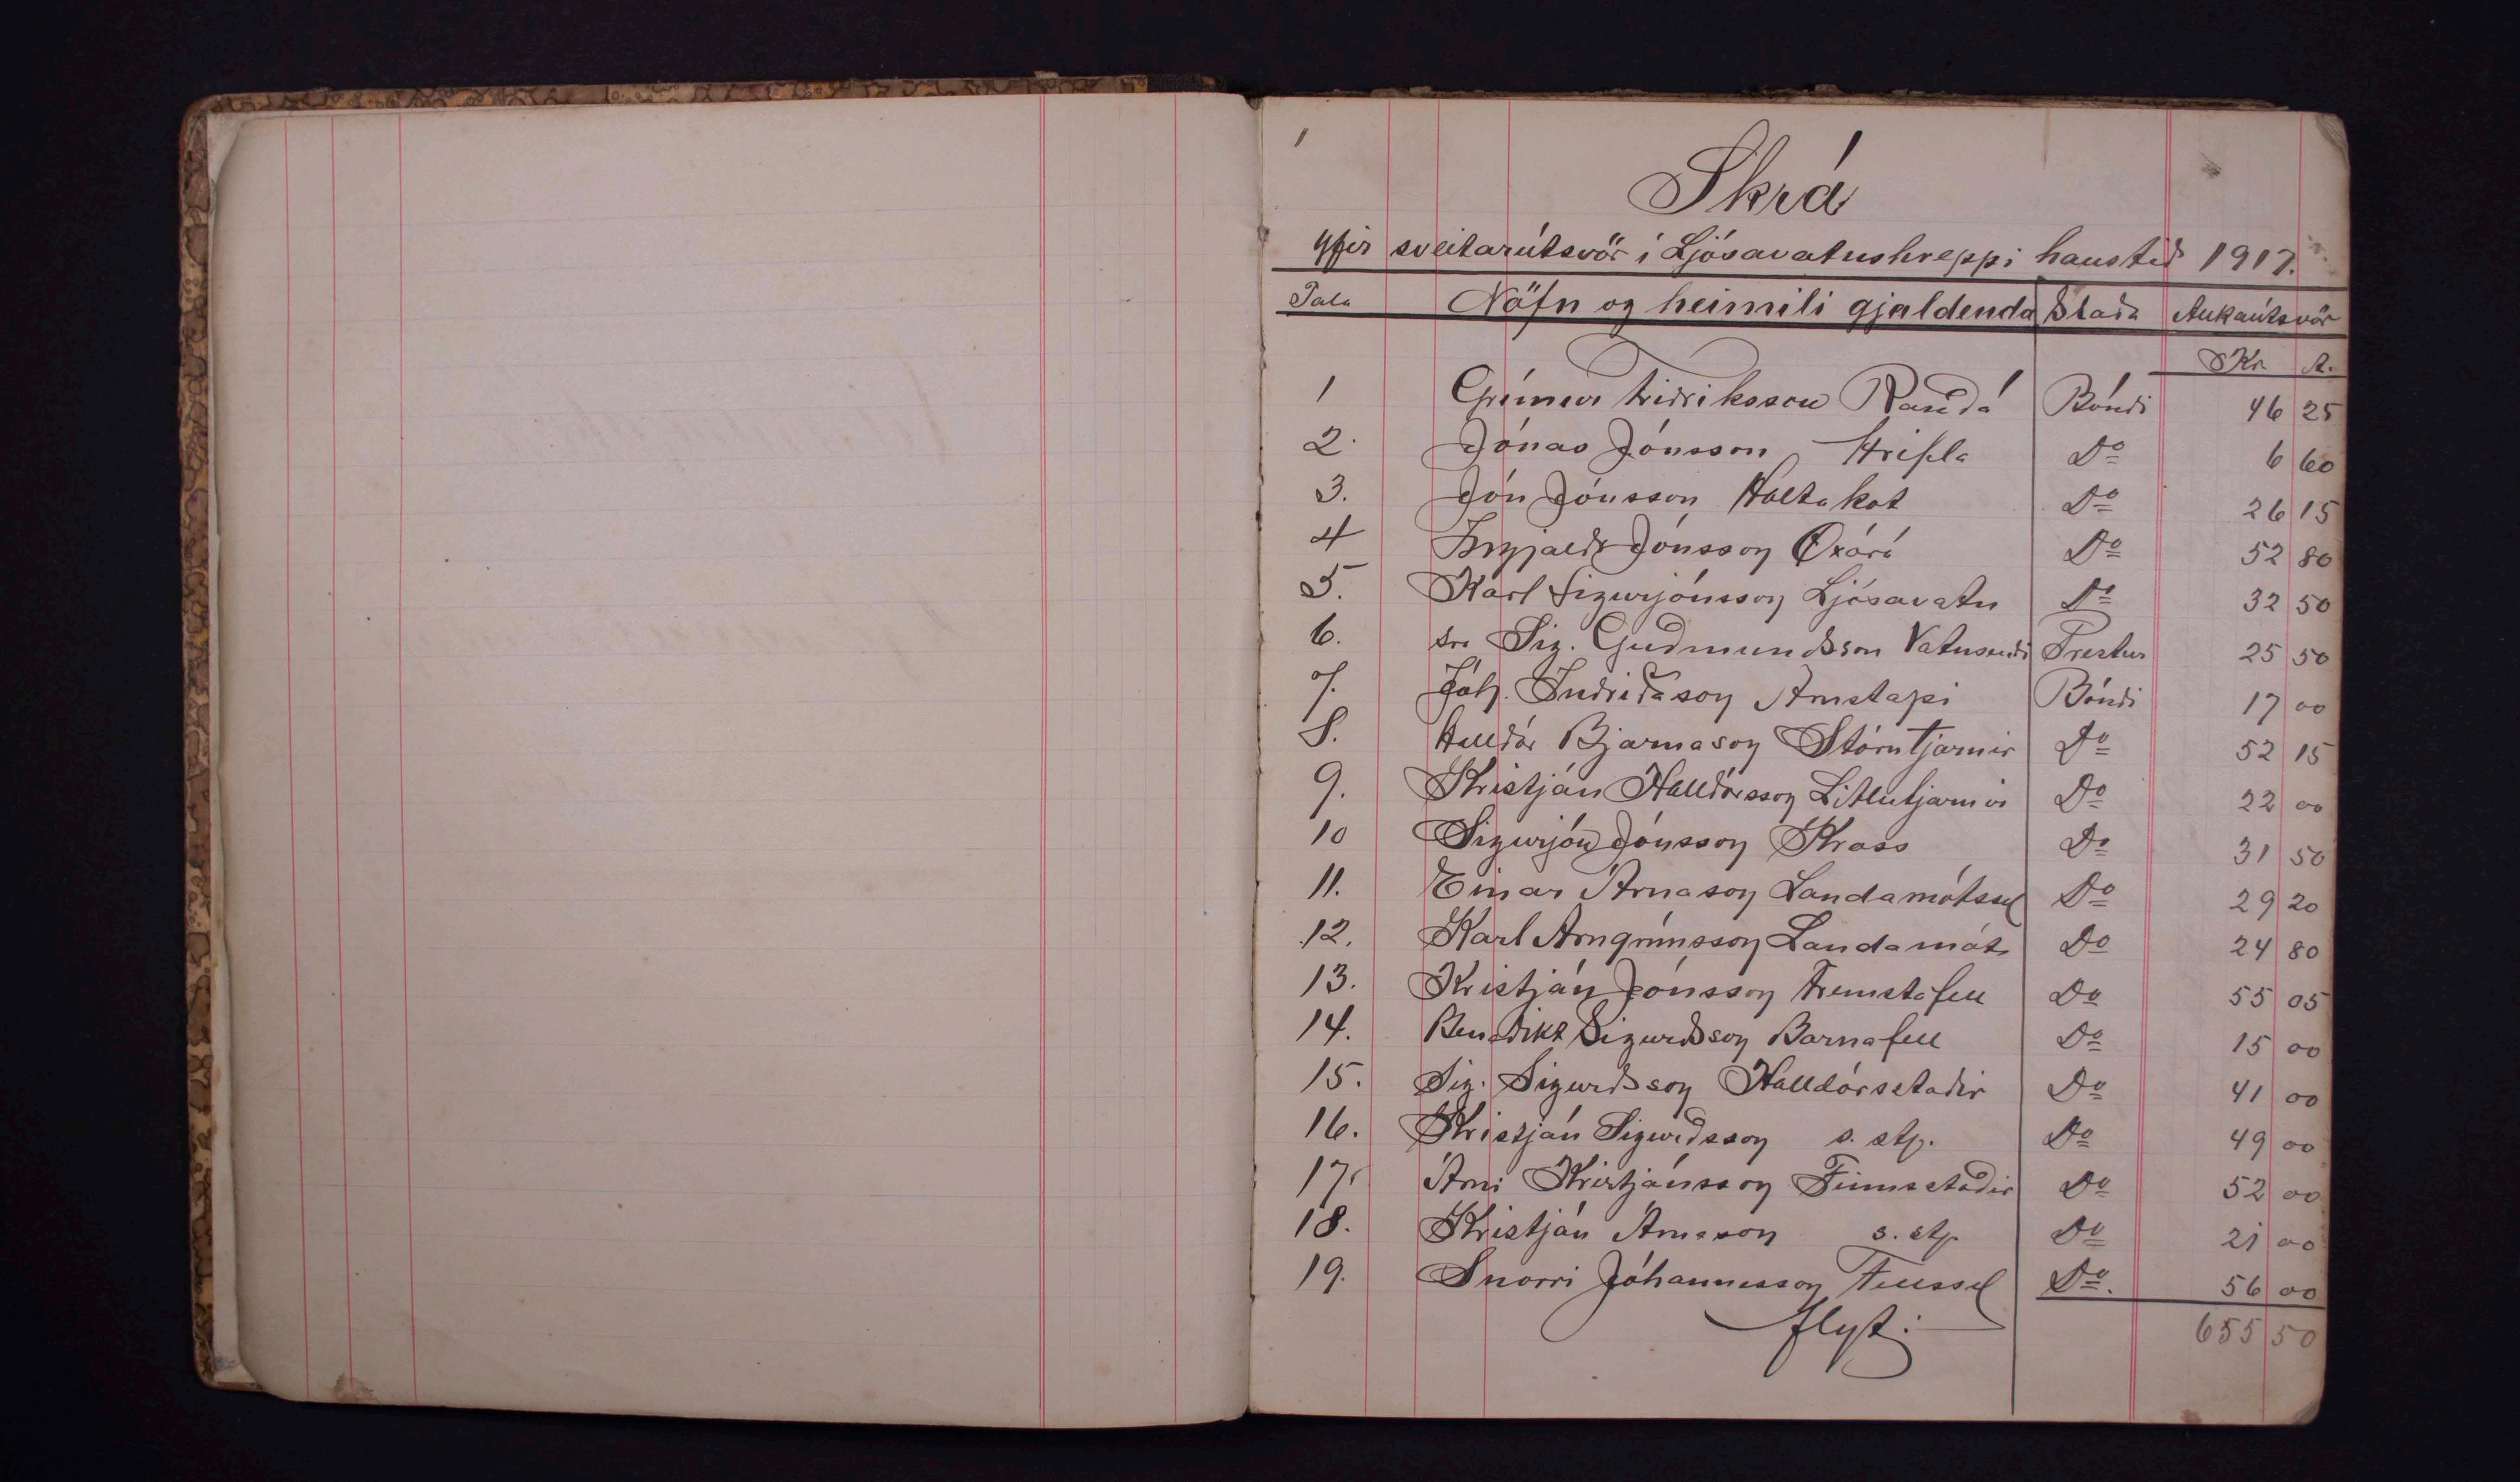 1
Skrá
yfir sveitarútsvör í Ljósavatnshreppi haustið 1917.
Tala Nöfn og heimili gjaldenda Staða Aukaútsvör
Kr. A.
1 Grímur Friðriksson Rauðá Bóndi 46 25
2. Jónas Jónsson Hrifla Do 6 60
3. Jón Jónsson Holtakot Do 26 15
4 Ingjaldr Jónsson Öxará Do 52 80
5. Karl Sigurjónsson Ljósavatn Do 32 50
6. sra Sig. Guðmundsson Vatnsendi Prestur 25 50
7. Jóh. Indriðason Arnstapi Bóndi 17 00
8. Halldór Bjarnason Stórutjarnir Do 52 15
9. Kristján Halldórsson Litlutjarnir Do 22 00
10 Sigurjón Jónsson Kross Do 31 50
11. Einar Árnason Landamótssel Do 29 20
12. Karl Arngrímsson Landamót Do 24 80
13. Kristján Jónsson Fremstafell Do 55 05
14. Benedikt Sigurðsson Barnafell Do 15 00
15. Sig. Sigurðsson Halldórsstaðir Do 41 00
16. Kristján Sigurðsson s. stp. Do 49 00
17. Árni Kristjánsson Finnsstaðir Do 52 00
18. Kristján Árnason s. stp. Do 21 00
19. Snorri Jóhannesson Fellssel Do. 56 00
flyt: 655 50